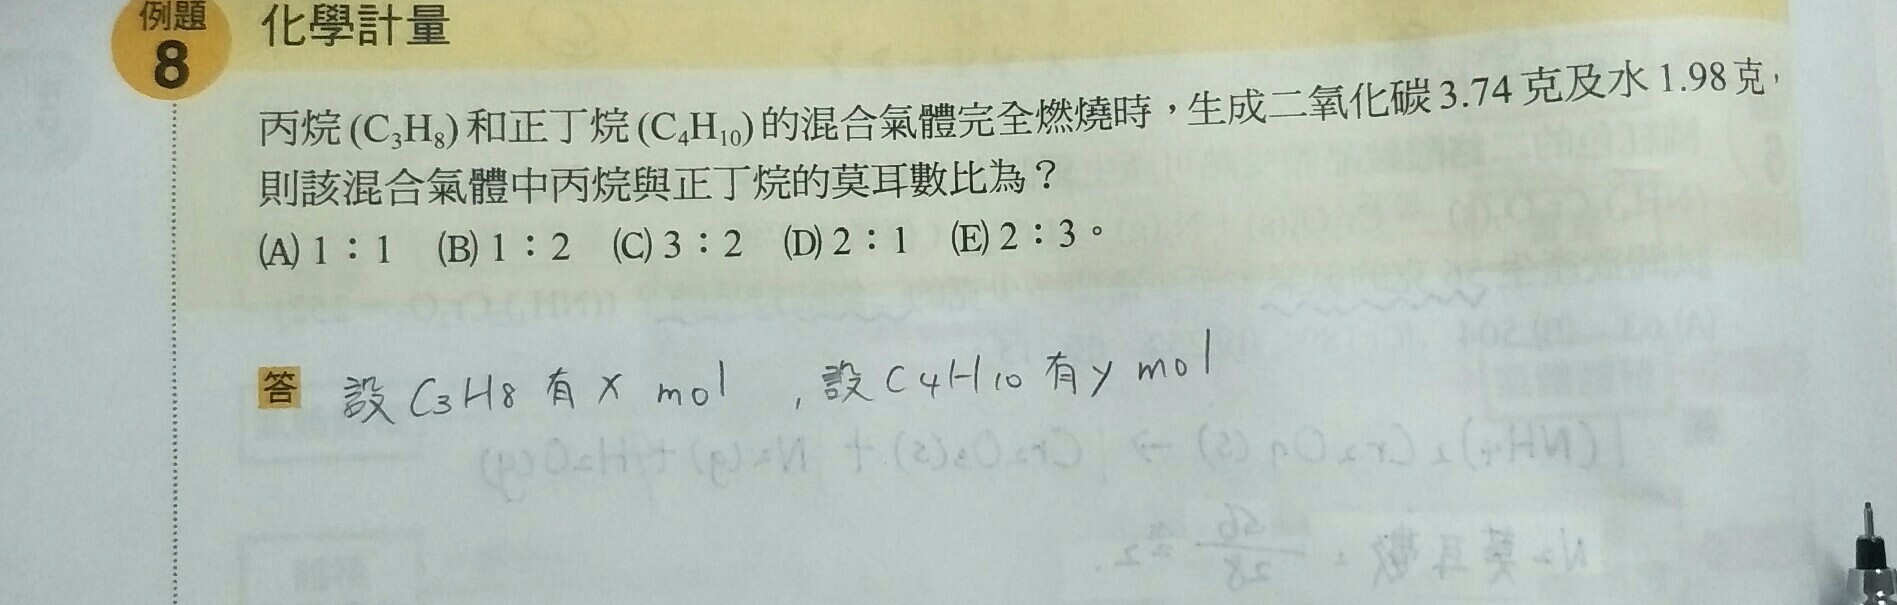 例題
8
化學計量
丙烷(C₃H₈)和正丁烷(C₄H₁₀)的混合氣體完全燃燒時,生成二氧化碳3.74克及水1.98克,
則該混合氣體中丙烷與正丁烷的莫耳數比為?
(A) 1:1 (B) 1:2 (C) 3:2 (D) 2:1 (E) 2:3。
答 設C₃H₈有x mol ,設C₄H₁₀有y mol